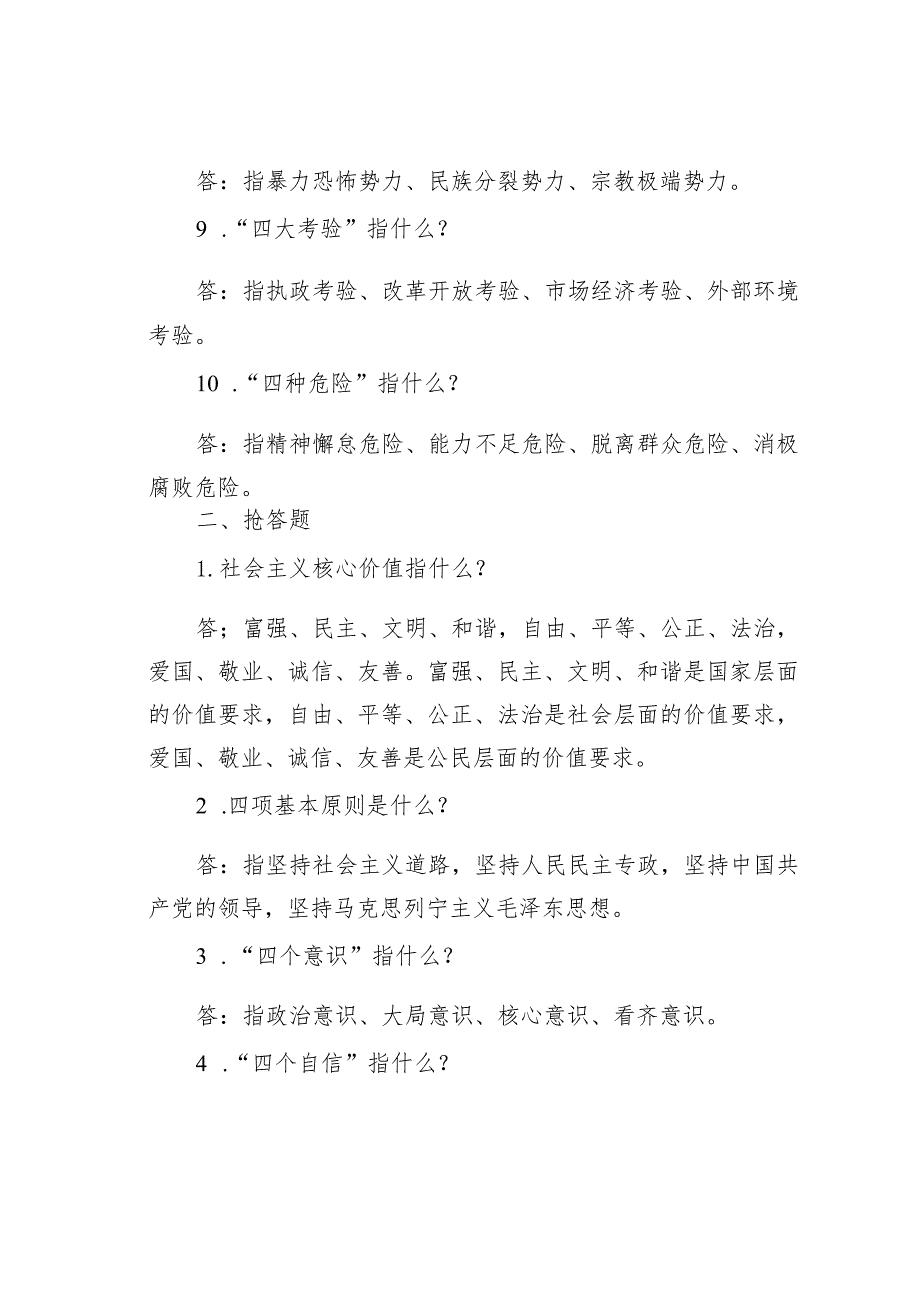 答：指暴力恐怖势力、民族分裂势力、宗教极端势力。
9 .“四大考验”指什么？
答：指执政考验、改革开放考验、市场经济考验、外部环境
考验。
10 .“四种危险”指什么？
答：指精神懈怠危险、能力不足危险、脱离群众危险、消极
腐败危险。
二、抢答题
1. 社会主义核心价值指什么？
答；富强、民主、文明、和谐，自由、平等、公正、法治，
爱国、敬业、诚信、友善。富强、民主、文明、和谐是国家层面
的价值要求，自由、平等、公正、法治是社会层面的价值要求，
爱国、敬业、诚信、友善是公民层面的价值要求。
2 .四项基本原则是什么？
答：指坚持社会主义道路，坚持人民民主专政，坚持中国共
产党的领导，坚持马克思列宁主义毛泽东思想。
3 .“四个意识”指什么？
答：指政治意识、大局意识、核心意识、看齐意识。
4 .“四个自信”指什么？